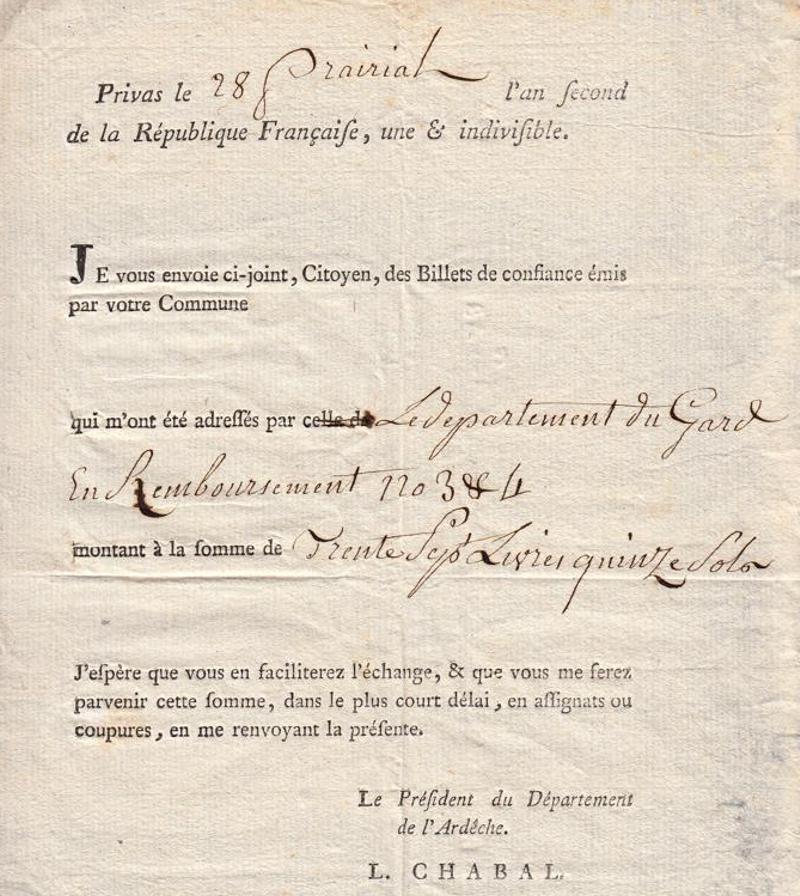 Privas le 28 Prairial l'an ſecond
de la République Françaiſe, une & indiviſible.
JE vous envoie ci-joint, Citoyen, des Billets de confiance émis
par votre Commune
qui m'ont été adreſſés par celle de Le departement du Gard
En Remboursement no 3 & 4
montant à la ſomme de Trente Sept Livres quinze Sols
J'eſpère que vous en faciliterez l'échange, & que vous me ſerez
parvenir cette ſomme, dans le plus court délai, en aſſignats ou
coupures, en me renvoyant la préſente.
Le Préſident du Département
de l'Ardêche.
L. CHABAL.